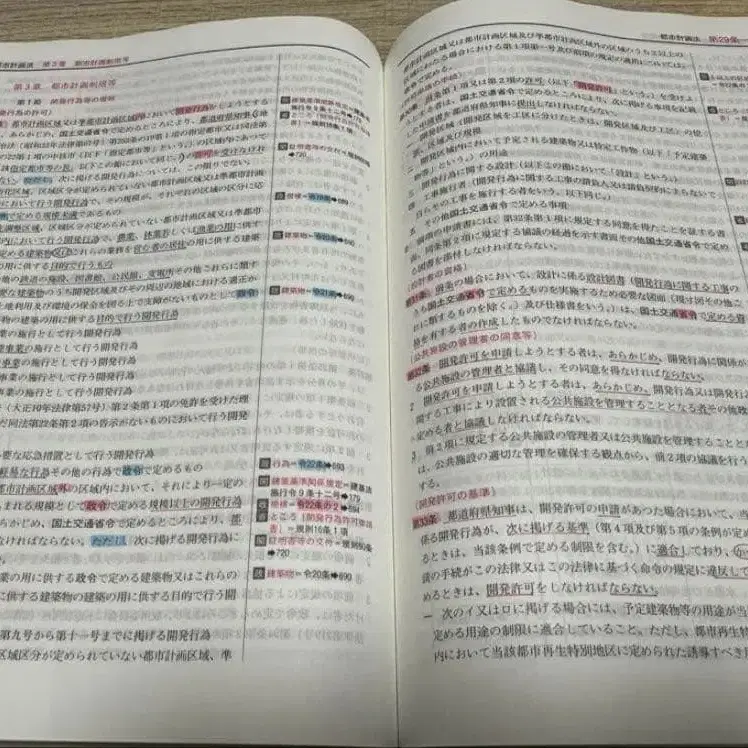 都市計画法 第3章 都市計画制限等
第3章 都市計画制限等
第1節 開発行為等の規制
都市計画区域又は準都市計画区域内において開発行為をしようとする
あらかじめ、国土交通省令で定めるところにより、都道府県知事
の許可を受けなけれ
ない。ただし、次に掲げる開発行為については、この限りでない。
区域区分が定められていない都市計画区域又は準都市
内で行う開発行為で、その規模が、それぞれの区域の区分に応
で定める規模未満であるもの
区域区分が定められていない都市計画区域又は準都市
内において行う開発行為で、農業、林業若しくは漁業の用に供す
る政令で定める建築物又はこれらの業務を営む者の居住の用に供する建築
の用に供する目的で行うもの
その他の鉄道の施設、図書館、公民館、変電所その他これらに類す
な建築物のうち開発区域及びその周辺の地域における適正か
土地利用及び環境の保全を図る上で支障がないものとして政令
の建築の用に供する目的で行う開発行為
業の施行として行う開発行為
事業の施行として行う開発行為
事業の施行として行う開発行為
事業の施行として行う開発行為
(大正10年法律第57号)第2条第1項の免許を受けた埋
だ同法第22条第2項の告示がないものにおいて行う開発
要な応急措置として行う開発行為
軽易な行為その他の行為で政令で定めるもの
都市計画区域外の区域内において、それにより一定の
まれる規模として政令で定める規模以上の開発行為
か、国土交通省令で定めるところにより、都
なければならない。ただし、次に掲げる開発行為
業の用に供する政令で定める建築物又はこれらの
に供する建築物の建築の用に供する目的で行う開
第九号から第十一号までに掲げる開発行為
区域区分が定められていない都市計画区域、準
行為=令22条➡693
建築基準関係規定=建基法
施行令9条十二号➡179
規模=令22条の2➡694
ところ(開発行為許可申請
書)=規則16条1項
証明書等の交付=規則60条
➡720
建築物=令20条➡690
都市計画法 第29条
都市計画区域又は準都市計画区域及び準都市計画区域外の区域のうち2以上の
区域にわたる場合における第1項第一号及び前項の規定の適用については、
政令で定める。
前条第1項又は第2項の許可(以下「開発許可」という。)を受けよ
うとする者は、国土交通省令で定めるところにより、次に掲げる事項を記載
した申請書を都道府県知事に提出しなければならない。
一 開発区域(開発区域を工区に分けたときは、開発区域及び工区)の位
置、区域及び規模
二 開発区域内において予定される建築物又は特定工作物(以下「予定建築
物等」という。)の用途
三 開発行為に関する設計(以下この節において「設計」という。)
四 工事施行者(開発行為に関する工事の請負人又は請負契約によらないで
自らその工事を施行する者をいう。以下同じ。)
五 その他国土交通省令で定める事項
2 前項の申請書には、第32条第1項に規定する同意を得たことを証する書
面、同条第2項に規定する協議の経過を示す書面その他国土交通省令で定め
る図書を添付しなければならない。
(設計者の資格)
第31条 前条の場合において、設計に係る設計図書(開発行為に関する工事の
うち国土交通省令で定めるものを実施するため必要な図面(現寸図その他こ
れに類するものを除く。)及び仕様書をいう。)は、国土交通省令で定める資
格を有する者の作成したものでなければならない。
(公共施設の管理者の同意等)
第32条 開発許可を申請しようとする者は、あらかじめ、開発行為に関係が
る公共施設の管理者と協議し、その同意を得なければならない。
2 開発許可を申請しようとする者は、あらかじめ、開発行為又は開発
関する工事により設置される公共施設を管理することとなる者その他政
定める者と協議しなければならない。
3 前2項に規定する公共施設の管理者又は公共施設を管理することと
は、公共施設の適切な管理を確保する観点から、前2項の協議を行う
する。
(開発許可の基準)
第33条 都道府県知事は、開発許可の申請があった場合において、当
係る開発行為が、次に掲げる基準(第4項及び第5項の条例が定め
るときは、当該条例で定める制限を含む。)に適合しており、かつ
請の手続がこの法律又はこの法律に基づく命令の規定に違反して
めるときは、開発許可をしなければならない。
一 次のイ又はロに掲げる場合には、予定建築物等の用途が当
定める用途の制限に適合していること。ただし、都市再生特
内において当該都市再生特別地区に定められた誘導すべき用